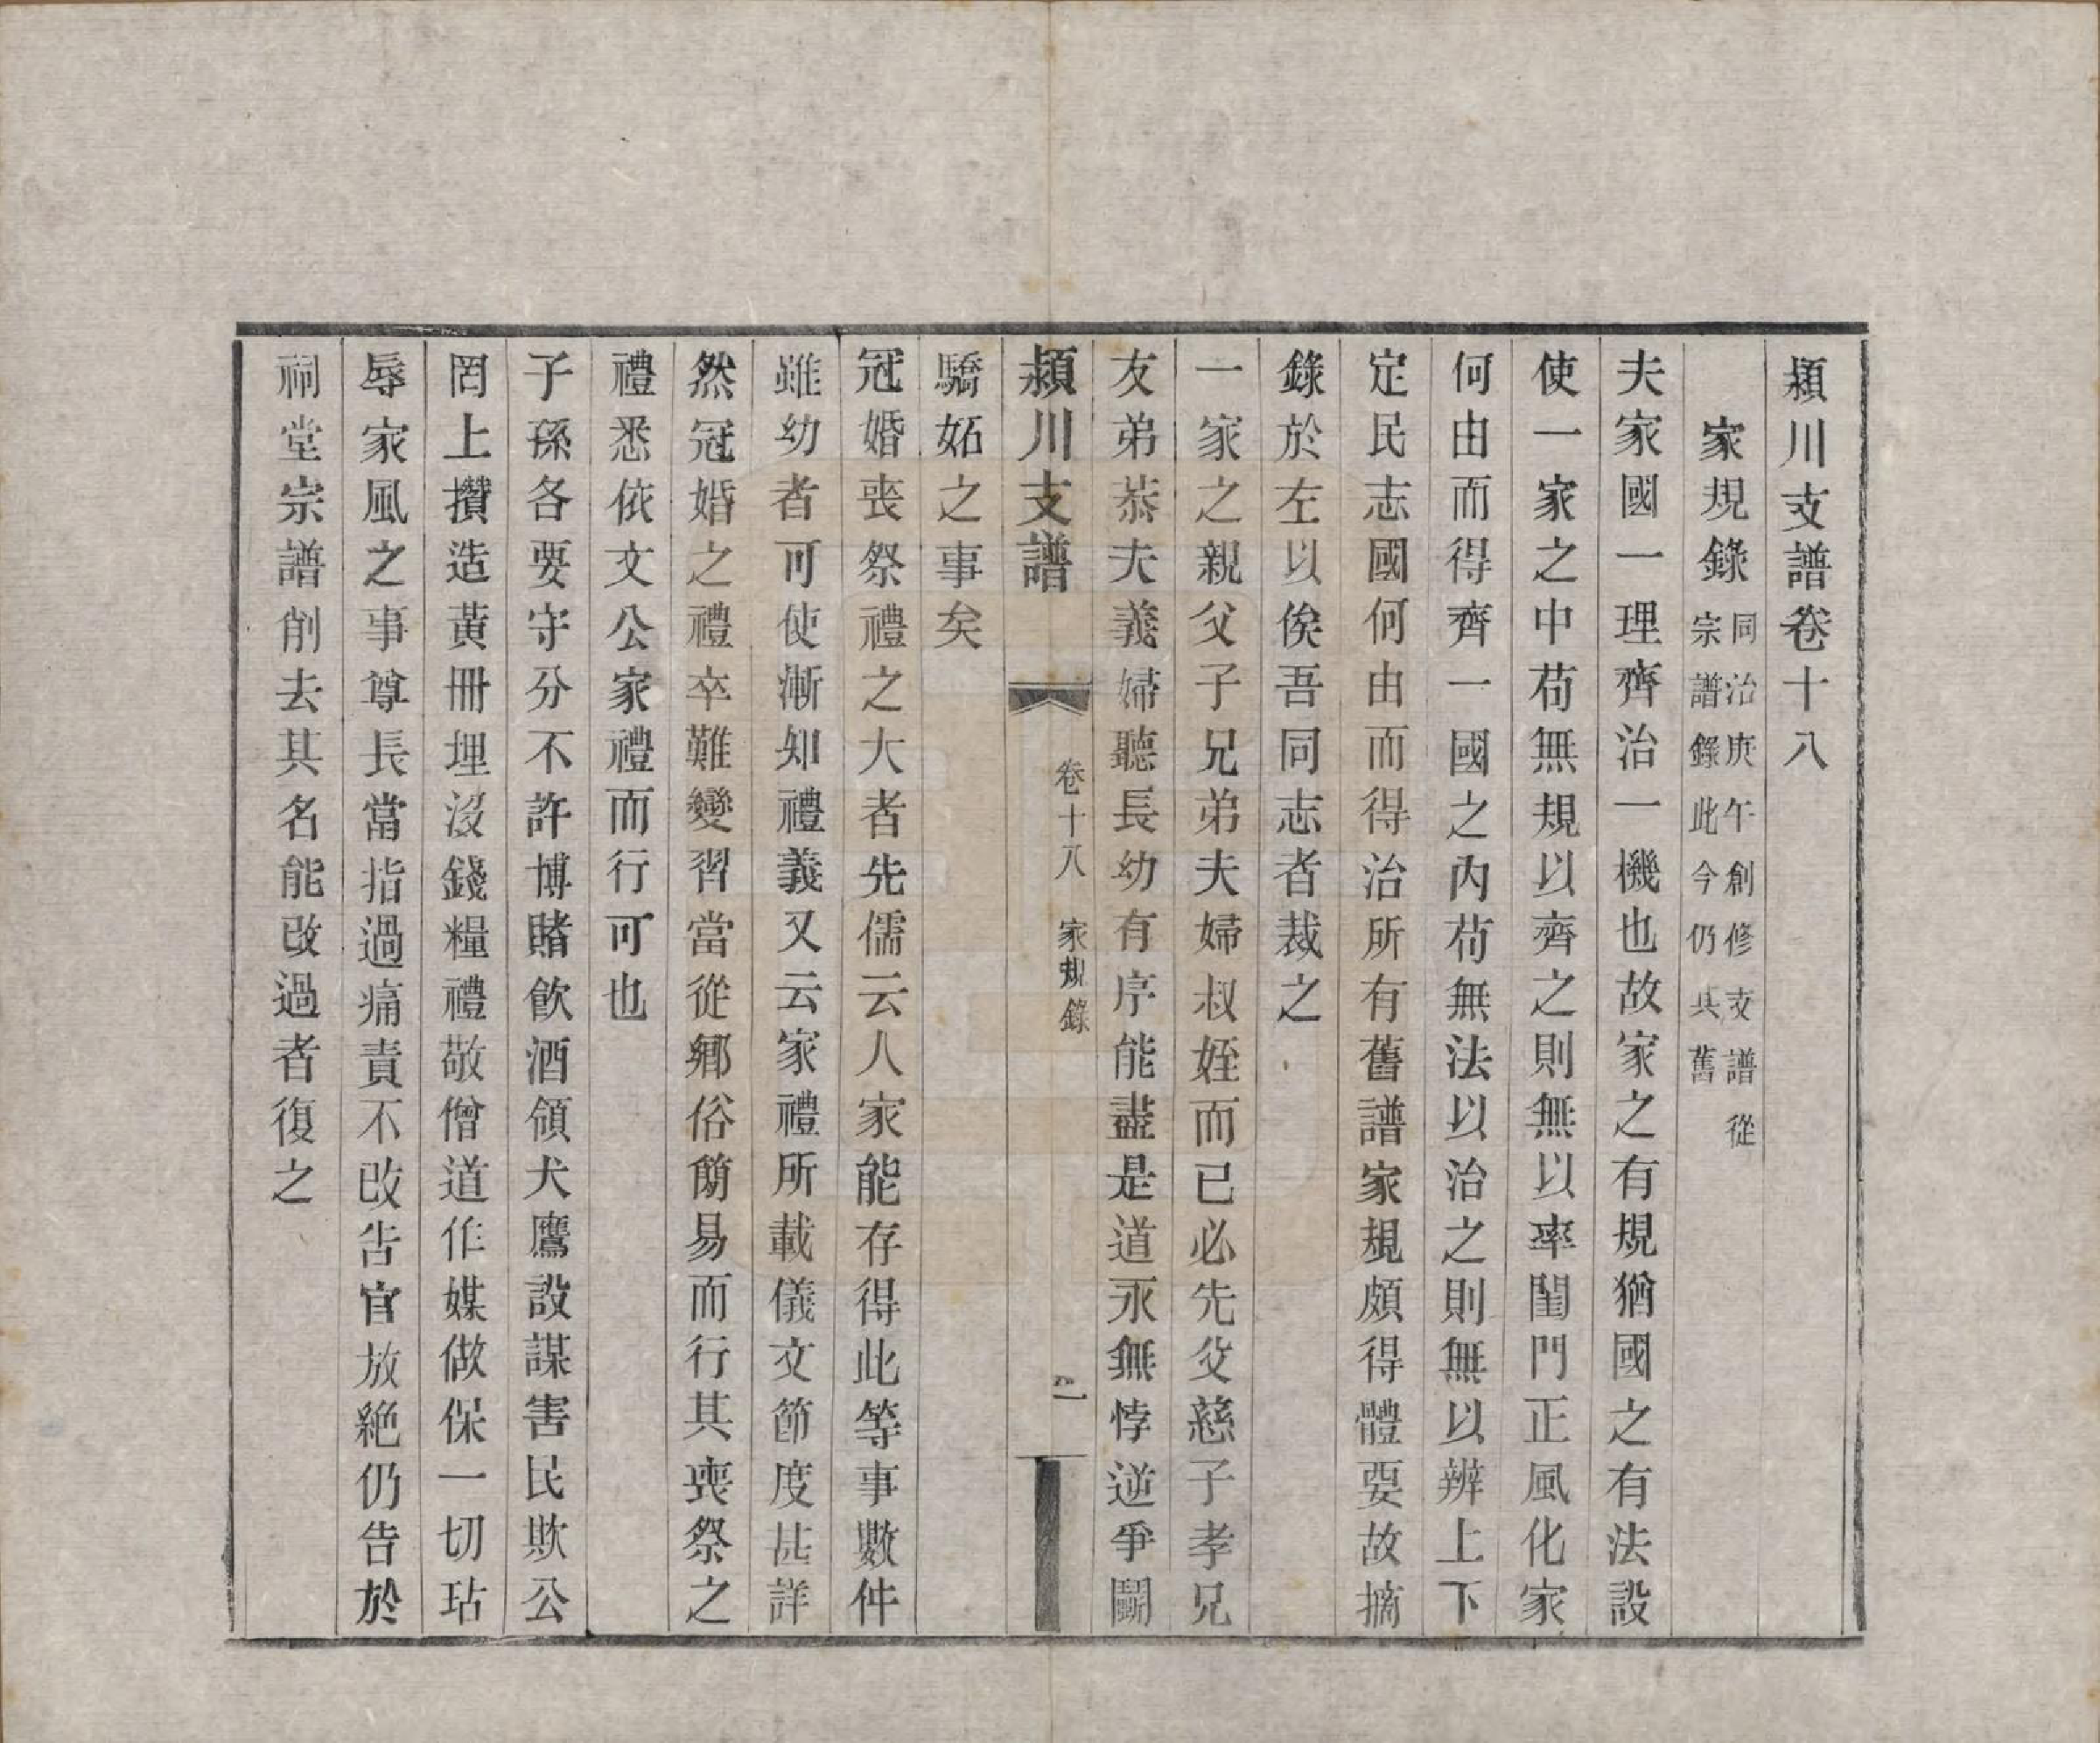 潁川支譜卷十八
家規錄同治庚午創修支譜從
宗譜錄此今仍其舊
夫家國一理齊治一機也故家之有規猶國之有法設
使一家之中苟無規以齊之則無以率閨門正風化家
何由而得齊一國之內苟無法以治之則無以辨上下
定民志國何由而得治所有舊譜家規頗得體要故摘
錄於左以俟吾同志者裁之
一家之親父子兄弟夫婦叔姪而已必先父慈子孝兄
友弟恭夫義婦聽長幼有序能盡是道永無悖逆爭鬭
潁川支譜
卷十八
家規錄
一
驕妬之事矣
冠婚喪祭禮之大者先儒云人家能存得此等事數件
雖幼者可使漸知禮義又云家禮所載儀文節度甚詳
然冠婚之禮卒難變習當從鄉俗簡易而行其喪祭之
禮悉依文公家禮而行可也
子孫各要守分不許博賭飲酒領犬鷹設謀害民欺公
罔上攢造黃冊埋沒錢糧禮敬僧道作媒做保一切玷
辱家風之事尊長當指過痛責不改告官放絕仍告於
祠堂宗譜削去其名能改過者復之